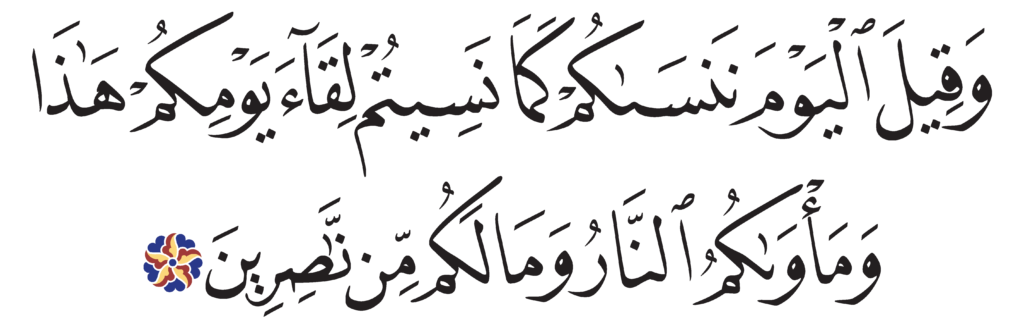 وَقِيلَ ٱلْيَوْمَ نَنسَىٰكُمْ كَمَا نَسِيتُمْ لِقَآءَ يَوْمِكُمْ هَٰذَا
وَمَأْوَىٰكُمُ ٱلنَّارُ وَمَا لَكُم مِّن نَّٰصِرِينَ